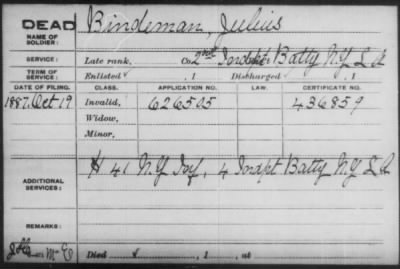 DEAD
NAME OF SOLDIER: Bindeman, Julius
SERVICE: Late rank, Co. 2nd Indpt Batty N.Y. L A
TERM OF SERVICE: Enlisted , 1 Discharged , 1
DATE OF FILING. CLASS. APPLICATION NO. LAW. CERTIFICATE NO.
1887, Oct 19 Invalid, 626505 436859
Widow,
Minor,
ADDITIONAL SERVICES: H 41 N.Y. Inf, 4 Indpt Batty N.Y. L A
REMARKS:
Died , 1 , at